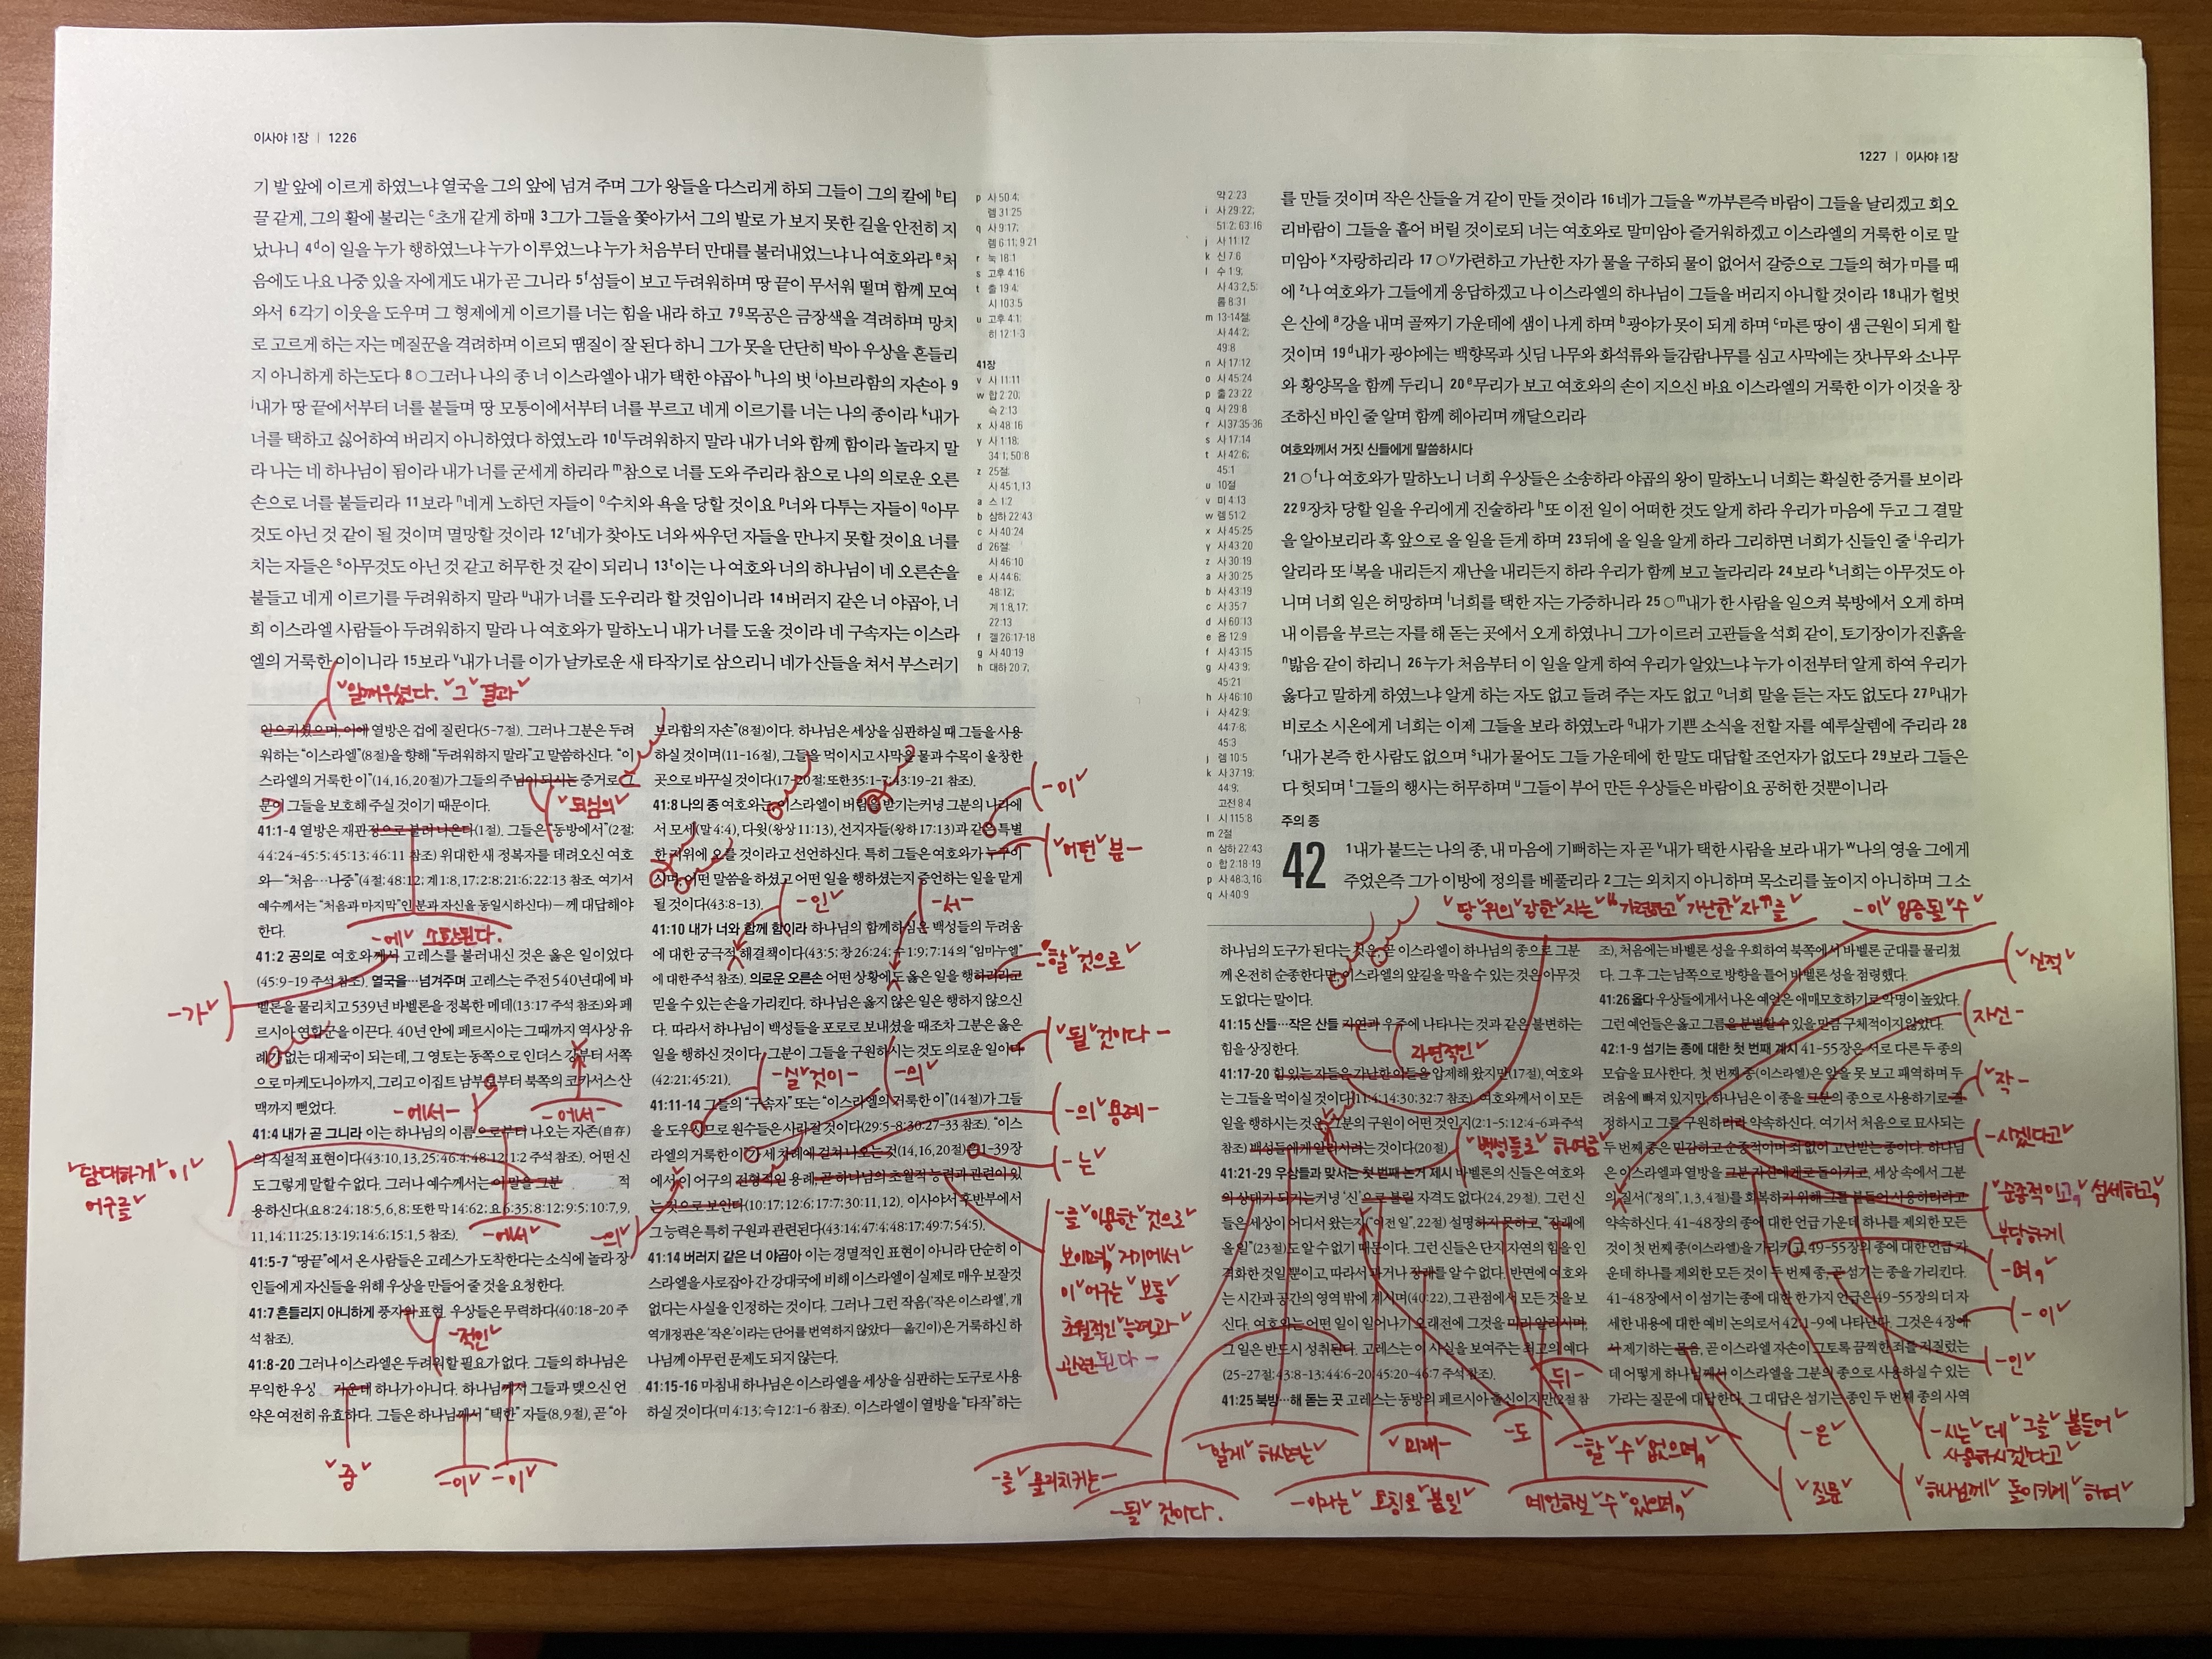 이사야 1장 | 1226
기 발 앞에 이르게 하였느냐 열국을 그의 앞에 넘겨 주며 그가 왕들을 다스리게 하되 그들이 그의 칼에 b티
끌 같게, 그의 활에 불리는 c초개 같게 하매 3그가 그들을 쫓아가서 그의 발로 가 보지 못한 길을 안전히 지
났나니 4d이 일을 누가 행하였느냐 누가 이루었느냐 누가 처음부터 만대를 불러내었느냐 나 여호와라 e처
음에도 나요 나중 있을 자에게도 내가 곧 그니라 5f섬들이 보고 두려워하며 땅 끝이 무서워 떨며 함께 모여
와서 6각기 이웃을 도우며 그 형제에게 이르기를 너는 힘을 내라 하고 7g목공은 금장색을 격려하며 망치
로 고르게 하는 자는 메질꾼을 격려하며 이르되 땜질이 잘 된다 하니 그가 못을 단단히 박아 우상을 흔들리
지 아니하게 하는도다 8○그러나 나의 종 너 이스라엘아 내가 택한 야곱아 h나의 벗 i아브라함의 자손아 9
j내가 땅 끝에서부터 너를 붙들며 땅 모퉁이에서부터 너를 부르고 네게 이르기를 너는 나의 종이라 k내가
너를 택하고 싫어하여 버리지 아니하였다 하였노라 10l두려워하지 말라 내가 너와 함께 함이라 놀라지 말
라 나는 네 하나님이 됨이라 내가 너를 굳세게 하리라 m참으로 너를 도와 주리라 참으로 나의 의로운 오른
손으로 너를 붙들리라 11보라 n네게 노하던 자들이 o수치와 욕을 당할 것이요 p너와 다투는 자들이 q아무
것도 아닌 것 같이 될 것이며 멸망할 것이라 12r네가 찾아도 너와 싸우던 자들을 만나지 못할 것이요 너를
치는 자들은 s아무것도 아닌 것 같고 허무한 것 같이 되리니 13t이는 나 여호와 너의 하나님이 네 오른손을
붙들고 네게 이르기를 두려워하지 말라 u내가 너를 도우리라 할 것임이니라 14버러지 같은 너 야곱아, 너
희 이스라엘 사람들아 두려워하지 말라 나 여호와가 말하노니 내가 너를 도울 것이라 네 구속자는 이스라
엘의 거룩한 이이니라 15보라 v내가 너를 이가 날카로운 새 타작기로 삼으리니 네가 산들을 쳐서 부스러기
p 사 50:4;
렘 31:25
q 사 9:17;
렘 6:11; 9:21
r 눅 18:1
s 고후 4:16
t 출 19:4;
시 103:5
u 고후 4:1;
히 12:1-3
41장
v 시 11:11
w 합 2:20;
슥 2:13
x 사 48:16
y 사 1:18;
34:1; 50:8
z 25절;
사 45:1, 13
a 스 1:2
b 삼하 22:43
c 사 40:24
d 26절;
사 46:10
e 사 44:6;
48:12;
계 1:8, 17;
22:13
f 겔 26:17-18
g 사 40:19
h 대하 20:7;
일깨우셨다. 그 결과
일으키셨으며, 이에 열방은 겁에 질린다(5-7절). 그러나 그분은 두려
워하는 “이스라엘”(8절)을 향해 “두려워하지 말라”고 말씀하신다. “이
스라엘의 거룩한 이”(14, 16, 20절)가 그들의 주님이 되시는 증거로 그
분이 그들을 보호해 주실 것이기 때문이다.
되심의
41:1-4 열방은 재판정으로 불려 나온다(1절). 그들은 “동방에서”(2절;
44:24-45:5; 45:13; 46:11 참조) 위대한 새 정복자를 데려오신 여호
와—“처음…나중”(4절; 48:12; 계 1:8, 17; 2:8; 21:6; 22:13 참조. 여기서
예수께서는 “처음과 마지막”인 분과 자신을 동일시하신다)—께 대답해야
한다.
-에 소환된다.
41:2 공의로 여호와께서 고레스를 불러내신 것은 옳은 일이었다
(45:9-19 주석 참조). 열국을…넘겨주며 고레스는 주전 540년대에 바
벨론을 물리치고 539년 바벨론을 정복한 메데(13:17 주석 참조)와 페
르시아 연합군을 이끈다. 40년 안에 페르시아는 그때까지 역사상 유
례가 없는 대제국이 되는데, 그 영토는 동쪽으로 인더스 강부터 서쪽
으로 마케도니아까지, 그리고 이집트 남부로부터 북쪽의 코카서스 산
맥까지 뻗었다.
-가
-에서-
-에서-
41:4 내가 곧 그니라 이는 하나님의 이름으로부터 나오는 자존(自存)
의 직설적 표현이다(43:10, 13, 25; 46:4; 48:12; 1:2 주석 참조). 어떤 신
도 그렇게 말할 수 없다. 그러나 예수께서는 이 말을 그분 적
용하신다(요 8:24; 18:5, 6, 8; 또한 막 14:62; 요 6:35; 8:12; 9:5; 10:7, 9,
11, 14; 11:25; 13:19; 14:6; 15:1, 5 참조).
담대하게 이
어구를
-에서
41:5-7 “땅끝”에서 온 사람들은 고레스가 도착한다는 소식에 놀라 장
인들에게 자신들을 위해 우상을 만들어 줄 것을 요청한다.
41:7 흔들리지 아니하게 풍자의 표현. 우상들은 무력하다(40:18-20 주
석 참조).
-적인
41:8-20 그러나 이스라엘은 두려워할 필요가 없다. 그들의 하나님은
무익한 우상 가운데 하나가 아니다. 하나님께서 그들과 맺으신 언
약은 여전히 유효하다. 그들은 하나님께서 “택한” 자들(8, 9절), 곧 “아
중
-이
-이
브라함의 자손”(8절)이다. 하나님은 세상을 심판하실 때 그들을 사용
하실 것이며(11-16절), 그들을 먹이시고 사막을 물과 수목이 울창한
곳으로 바꾸실 것이다(17-20절; 또한 35:1-7; 43:19-21 참조).
41:8 나의 종 여호와는 이스라엘이 버림을 받기는커녕 그분의 나라에
서 모세(말 4:4), 다윗(왕상 11:13), 선지자들(왕하 17:13)과 같은 특별
한 지위에 오를 것이라고 선언하신다. 특히 그들은 여호와가 누구이
시며, 어떤 말씀을 하셨고 어떤 일을 행하셨는지 증언하는 일을 맡게
될 것이다(43:8-13).
-이
어떤 분-
-인
-서-
41:10 내가 너와 함께 함이라 하나님의 함께하심은 백성들의 두려움
에 대한 궁극적 해결책이다(43:5; 창 26:24; 수 1:9; 7:14의 “임마누엘”
에 대한 주석 참조). 의로운 오른손 어떤 상황에도 옳은 일을 행하리라고
믿을 수 있는 손을 가리킨다. 하나님은 옳지 않은 일은 행하지 않으신
다. 따라서 하나님이 백성들을 포로로 보내셨을 때조차 그분은 옳은
일을 행하신 것이다. 그분이 그들을 구원하시는 것도 의로운 일이다
(42:21; 45:21).
할 것으로
될 것이다-
-실 것이-
-의
41:11-14 그들의 “구속자” 또는 “이스라엘의 거룩한 이”(14절)가 그들
을 도우시므로 원수들은 사라질 것이다(29:5-8; 30:27-33 참조). “이스
라엘의 거룩한 이”가 세 차례에 걸쳐 나오는 것(14, 16, 20절)은 1-39장
에서 이 어구의 전형적인 용례, 곧 하나님의 초월적 능력과 관련이 있
는 것으로 보인다(10:17; 12:6; 17:7; 30:11, 12). 이사야서 후반부에서
그 능력은 특히 구원과 관련된다(43:14; 47:4; 48:17; 49:7; 54:5).
-의 용례-
-는
-의
-를 이용한 것으로
보이며, 거기에서
이 어구는 보통
초월적인 능력과
관련된다-
41:14 버러지 같은 너 야곱아 이는 경멸적인 표현이 아니라 단순히 이
스라엘을 사로잡아 간 강대국에 비해 이스라엘이 실제로 매우 보잘것
없다는 사실을 인정하는 것이다. 그러나 그런 작음(‘작은 이스라엘’, 개
역개정판은 ‘작은’이라는 단어를 번역하지 않았다—옮긴이)은 거룩하신 하
나님께 아무런 문제도 되지 않는다.
41:15-16 마침내 하나님은 이스라엘을 세상을 심판하는 도구로 사용
하실 것이다(미 4:13; 슥 12:1-6 참조). 이스라엘이 열방을 “타작”하는
1227 | 이사야 1장
약 2:23
i 사 29:22;
51:2; 63:16
j 사 11:12
k 신 7:6
l 수 1:9;
사 43:2, 5;
롬 8:31
m 13-14절;
사 44:2;
49:8
n 사 17:12
o 사 45:24
p 출 23:22
q 사 29:8
r 시 37:35-36
s 사 17:14
t 사 42:6;
45:1
u 10절
v 미 4:13
w 렘 51:2
x 사 45:25
y 사 43:20
z 사 30:19
a 사 30:25
b 사 43:19
c 사 35:7
d 사 60:13
e 욥 12:9
f 사 43:15
g 사 43:9;
45:21
h 사 46:10
i 사 42:9;
44:7-8;
45:3
j 렘 10:5
k 사 37:19;
44:9;
고전 8:4
l 시 115:8
m 2절
n 삼하 22:43
o 합 2:18-19
p 사 48:3, 16
q 사 40:9
를 만들 것이며 작은 산들을 겨 같이 만들 것이라 16네가 그들을 w까부른즉 바람이 그들을 날리겠고 회오
리바람이 그들을 흩어 버릴 것이로되 너는 여호와로 말미암아 즐거워하겠고 이스라엘의 거룩한 이로 말
미암아 x자랑하리라 17○y가련하고 가난한 자가 물을 구하되 물이 없어서 갈증으로 그들의 혀가 마를 때
에 z나 여호와가 그들에게 응답하겠고 나 이스라엘의 하나님이 그들을 버리지 아니할 것이라 18내가 헐벗
은 산에 a강을 내며 골짜기 가운데에 샘이 나게 하며 b광야가 못이 되게 하며 c마른 땅이 샘 근원이 되게 할
것이며 19d내가 광야에는 백향목과 싯딤 나무와 화석류와 들감람나무를 심고 사막에는 잣나무와 소나무
와 황양목을 함께 두리니 20e무리가 보고 여호와의 손이 지으신 바요 이스라엘의 거룩한 이가 이것을 창
조하신 바인 줄 알며 함께 헤아리며 깨달으리라
여호와께서 거짓 신들에게 말씀하시다
21○f나 여호와가 말하노니 너희 우상들은 소송하라 야곱의 왕이 말하노니 너희는 확실한 증거를 보이라
22g장차 당할 일을 우리에게 진술하라 h또 이전 일이 어떠한 것도 알게 하라 우리가 마음에 두고 그 결말
을 알아보리라 혹 앞으로 올 일을 듣게 하며 23뒤에 올 일을 알게 하라 그리하면 너희가 신들인 줄 i우리가
알리라 또 j복을 내리든지 재난을 내리든지 하라 우리가 함께 보고 놀라리라 24보라 k너희는 아무것도 아
니며 너희 일은 허망하며 l너희를 택한 자는 가증하니라 25○m내가 한 사람을 일으켜 북방에서 오게 하며
내 이름을 부르는 자를 해 돋는 곳에서 오게 하였나니 그가 이르러 고관들을 석회 같이, 토기장이가 진흙을
n밟음 같이 하리니 26누가 처음부터 이 일을 알게 하여 우리가 알았느냐 누가 이전부터 알게 하여 우리가
옳다고 말하게 하였느냐 알게 하는 자도 없고 들려 주는 자도 없고 o너희 말을 듣는 자도 없도다 27p내가
비로소 시온에게 너희는 이제 그들을 보라 하였노라 q내가 기쁜 소식을 전할 자를 예루살렘에 주리라 28
r내가 본즉 한 사람도 없으며 s내가 물어도 그들 가운데에 한 말도 대답할 조언자가 없도다 29보라 그들은
다 헛되며 t그들의 행사는 허무하며 u그들이 부어 만든 우상들은 바람이요 공허한 것뿐이니라
주의 종
42 1내가 붙드는 나의 종, 내 마음에 기뻐하는 자 곧 v내가 택한 사람을 보라 내가 w나의 영을 그에게
주었은즉 그가 이방에 정의를 베풀리라 2그는 외치지 아니하며 목소리를 높이지 아니하며 그 소
땅 위의 강한 자는 “가련하고 가난한 자”를
-이 입증될 수
하나님의 도구가 된다는 것은, 곧 이스라엘이 하나님의 종으로 그분
께 온전히 순종한다면, 이스라엘의 앞길을 막을 수 있는 것은 아무것
도 없다는 말이다.
41:15 산들…작은 산들 자연과 우주에 나타나는 것과 같은 불변하는
힘을 상징한다.
자연적인
41:17-20 힘 있는 자들은 가난한 이들을 압제해 왔지만(17절), 여호와
는 그들을 먹이실 것이다(11:4; 14:30; 32:7 참조). 여호와께서 이 모든
일을 행하시는 것은 그분의 구원이 어떤 것인지(2:1-5; 12:4-6과 주석
참조) 백성들에게 알리시려는 것이다(20절).
백성들로 하여금
41:21-29 우상들과 맞서는 첫 번째 논거 제시 바벨론의 신들은 여호와
의 상대가 되기는커녕 ‘신’으로 불릴 자격도 없다(24, 29절). 그런 신
들은 세상이 어디서 왔는지(“이전 일”, 22절) 설명하지 못하고, “장래에
올 일”(23절)도 알 수 없기 때문이다. 그런 신들은 단지 자연의 힘을 인
격화한 것일 뿐이고, 따라서 과거나 장래를 알 수 없다. 반면에 여호와
는 시간과 공간의 영역 밖에 계시며(40:22), 그 관점에서 모든 것을 보
신다. 여호와는 어떤 일이 일어나기 오래전에 그것을 미리 알리시며,
그 일은 반드시 성취된다. 고레스는 이 사실을 보여주는 최고의 예다
(25-27절; 43:8-13; 44:6-20; 45:20-46:7 주석 참조).
뒤-
41:25 북방…해 돋는 곳 고레스는 동방의 페르시아 출신이지만(2절 참
-를 물리치키는-
-될 것이다.
알게 하시려는
-이라는 호칭으로 불릴
미래-
-도
-할 수 없으며,
예언하실 수 있으며,
조), 처음에는 바벨론 성을 우회하여 북쪽에서 바벨론 군대를 물리쳤
다. 그 후 그는 남쪽으로 방향을 틀어 바벨론 성을 점령했다.
41:26 옳다 우상들에게서 나온 예언은 애매모호하기로 악명이 높았다.
그런 예언들은 옳고 그름을 분별할 수 있을 만큼 구체적이지 않았다.
42:1-9 섬기는 종에 대한 첫 번째 계시 41-55장은 서로 다른 두 종의
모습을 묘사한다. 첫 번째 종(이스라엘)은 앞을 못 보고 패역하며 두
려움에 빠져 있지만, 하나님은 이 종을 그분의 종으로 사용하기로 결
정하시고 그를 구원하리라 약속하신다. 여기서 처음으로 묘사되는
두 번째 종은 민감하고 순종적이며 죄 없이 고난받는 종이다. 하나님
은 이스라엘과 열방을 그분 자신에게로 돌이키고, 세상 속에서 그분
의 질서(“정의”, 1, 3, 4절)를 회복하기 위해 그를 붙들어 사용하리라고
약속하신다. 41-48장의 종에 대한 언급 가운데 하나를 제외한 모든
것이 첫 번째 종(이스라엘)을 가리키고, 49-55장의 종에 대한 언급 가
운데 하나를 제외한 모든 것이 두 번째 종, 곧 섬기는 종을 가리킨다.
41-48장에서 이 섬기는 종에 대한 한 가지 언급은 49-55장의 더 자
세한 내용에 대한 예비 논의로서 42:1-9에 나타난다. 그것은 4장에
서 제기하는 물음, 곧 이스라엘 자손이 그토록 끔찍한 죄를 저질렀는
데 어떻게 하나님께서 이스라엘을 그분의 종으로 사용하실 수 있는
가라는 질문에 대답한다. 그 대답은 섬기는 종인 두 번째 종의 사역
신적
자신-
-작-
-시겠다고
순종적이고, 섬세하고,
부당하게
-며,
-이
-인
-은
질문
-시는 데 그를 붙들어
사용하시겠다고
하나님께 돌이키게 하며